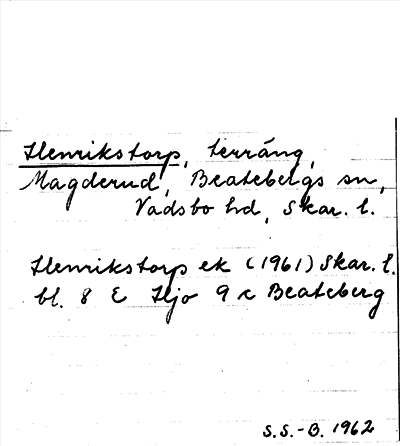 Henrikstorp, terräng,
Magderud, Beatebergs sn,
Vadsbo hd, Skar. l.
Henrikstorp ek (1961) Skar. l.
bl. 8 E Hjo 9 c Beateberg
S.S.-B. 1962